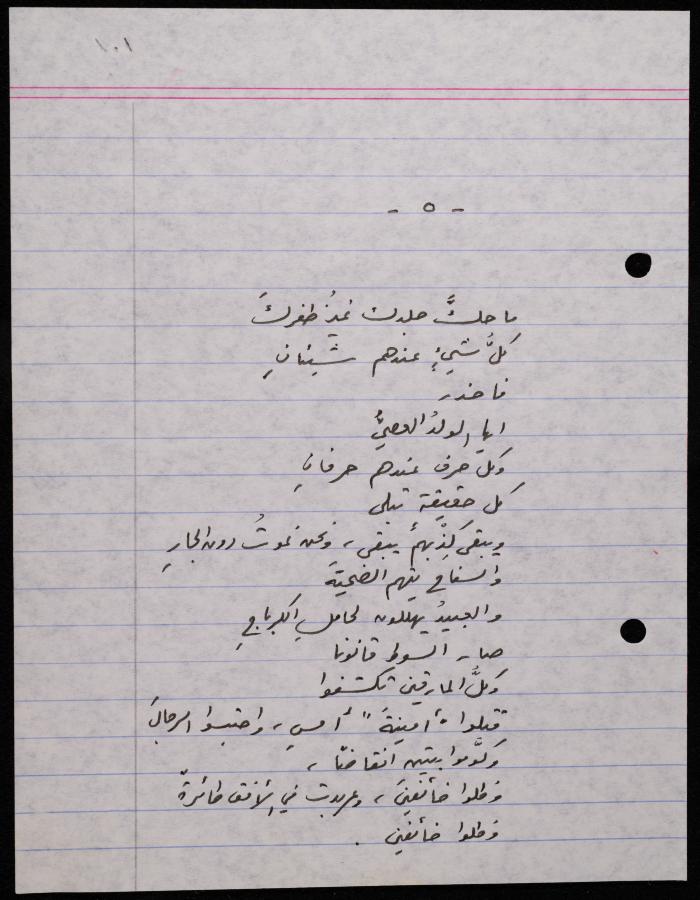 ١٠١
- ٥ -
ما حكَّ جلدك غيرُ ظفركَ
كلُّ شيءٍ عندهم شيئانِ
فاحذر
ايها الولدُ العصيُّ
وكل حرف عندهم حرفانِ
كل حقيقة تبلى
ويبقى كِذْبهمْ يبقى ، ونحن نموتُ دون الجارِ
والسفاح يتهم الضحيّةَ
والعبيدُ يهللون لحاملِ الكرباجِ
صار السوط قانونا
وكلُّ المارقين تكشفوا
قتلوا "أمينةَ" أمسِ ، واحتجبوا الرجالَ
وكوَّموا بيتين انقاضاً ،
وظلوا خائفينَ ، وعربدت في الأفق طائرةٌ
وظلوا خائفين .